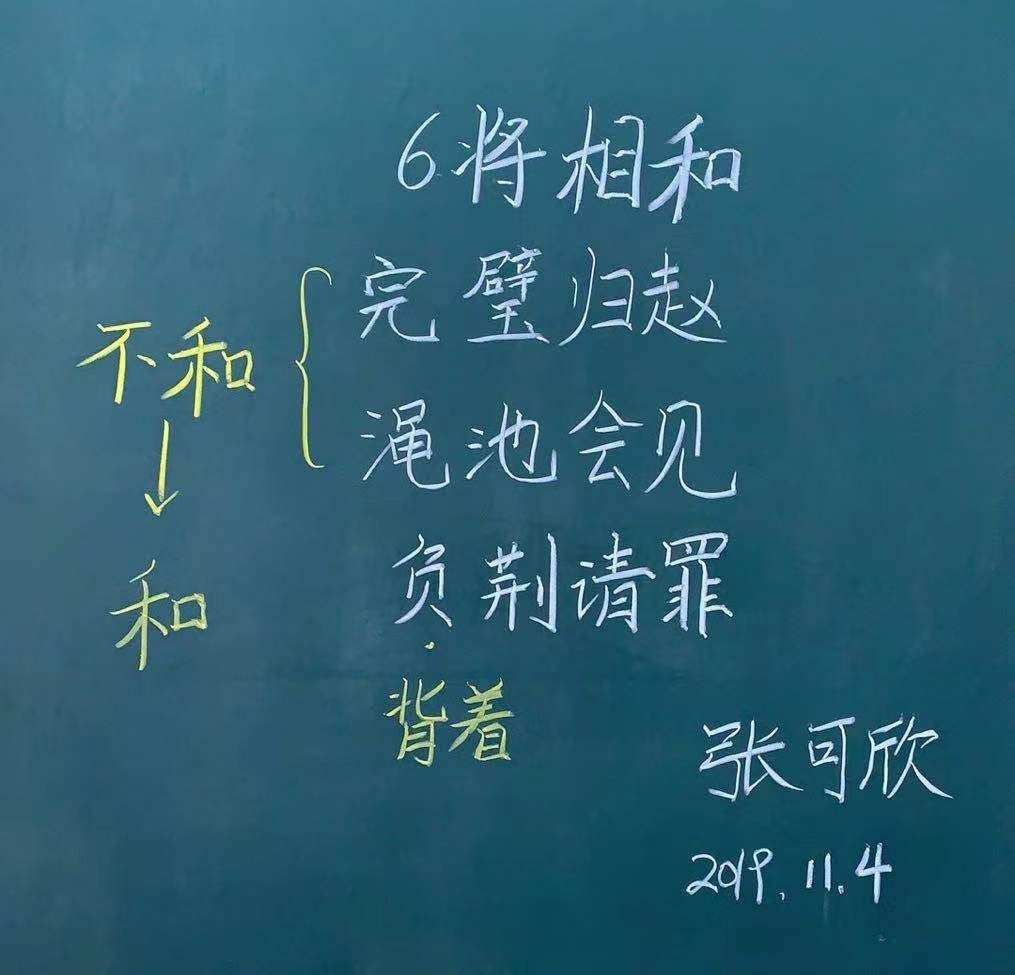 6将相和
完璧归赵
不和
渑池会见
和
负荆请罪
背着
张可欣
2019.11.4